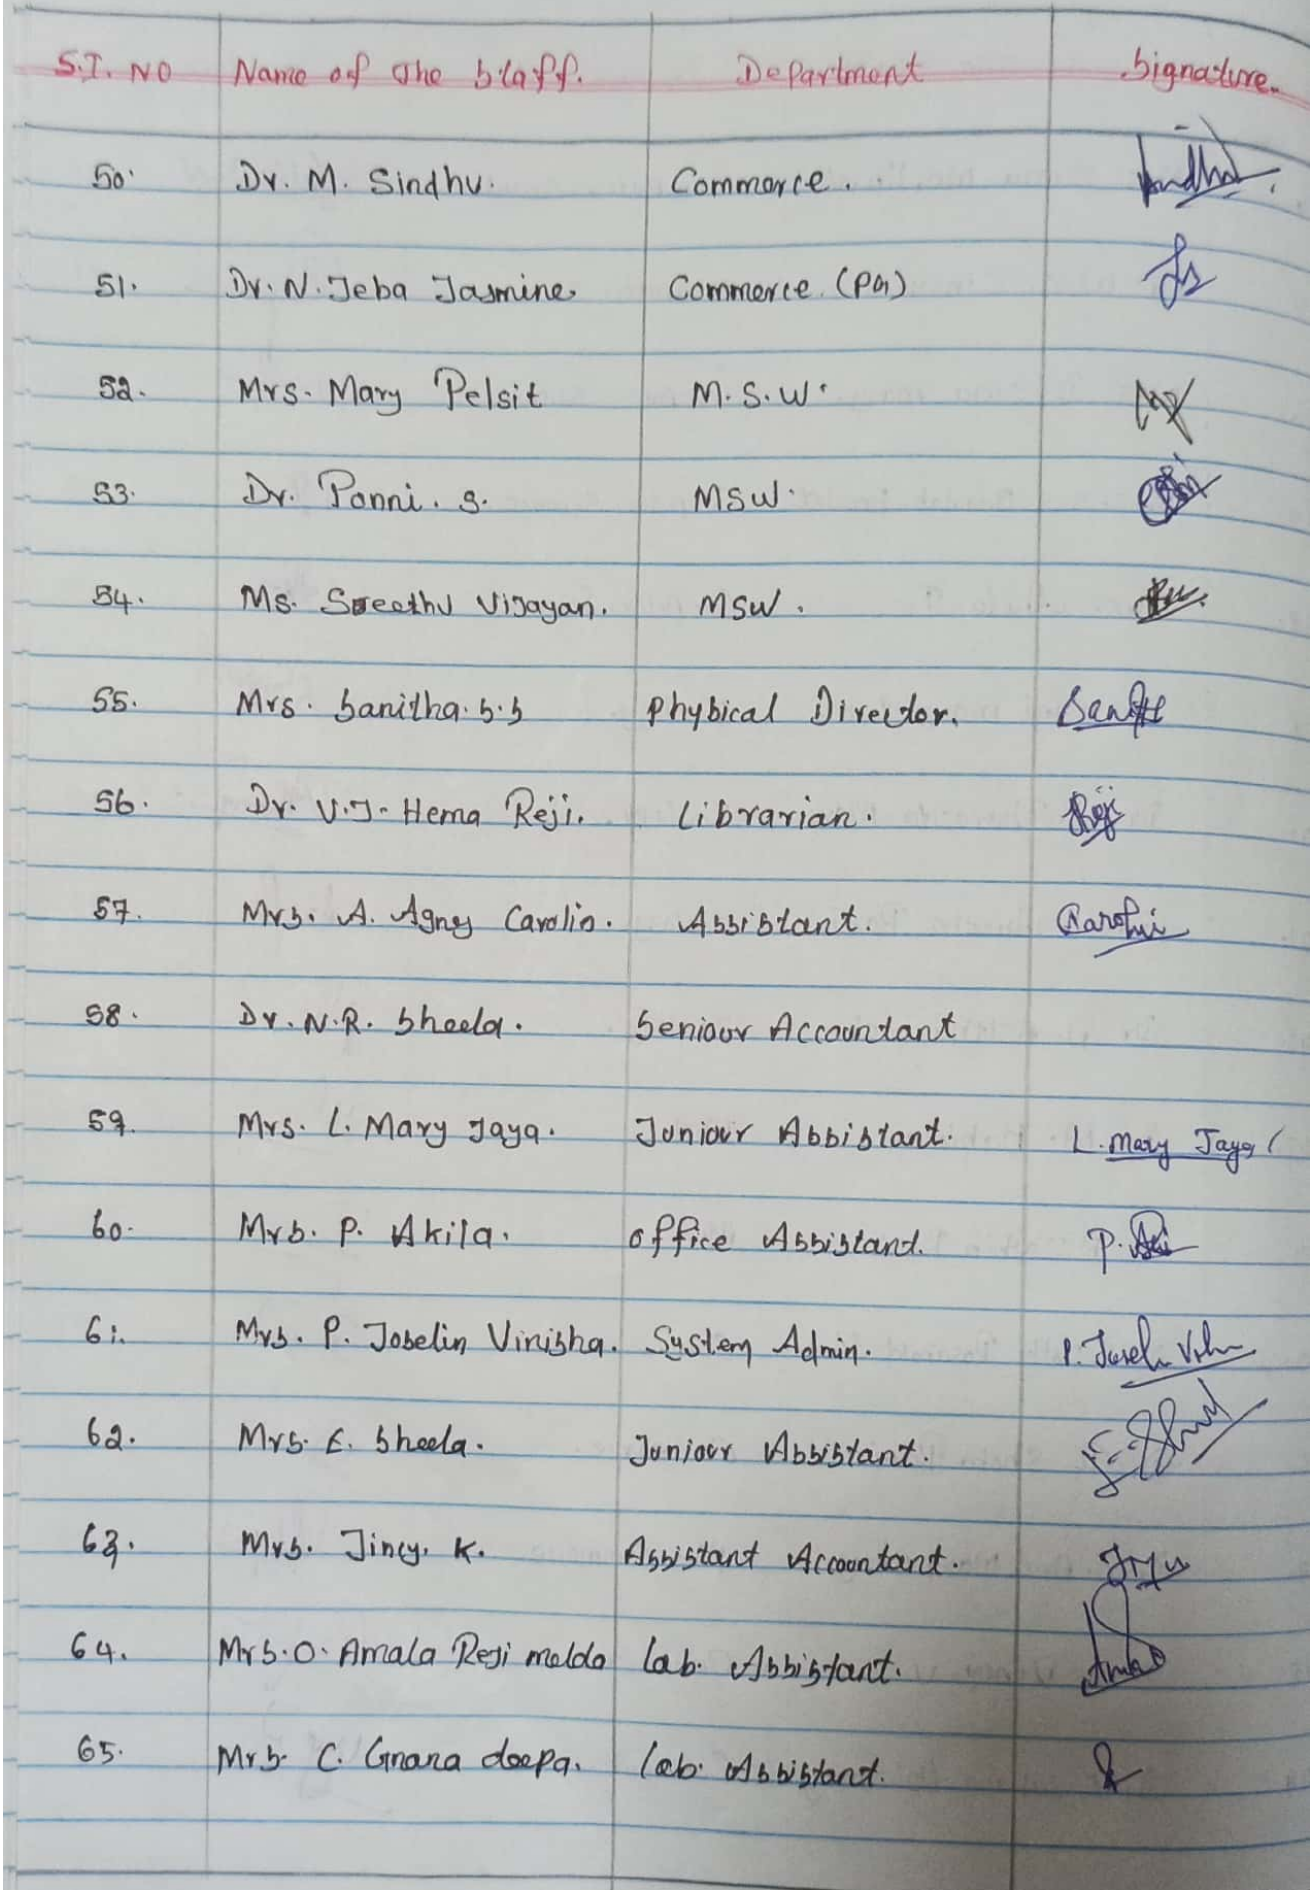 S.I. NO Name of the Staff. Department Signature.
50. Dr. M. Sindhu. Commerce.
51. Dr. N. Jeba Jasmine. Commerce (PA)
52. Mrs. Mary Pelsit M.S.W.
53. Dr. Ponni. S. MSW.
54. Ms. Sreethu Vijayan. MSW.
55. Mrs. Sanitha. S.S Physical Director.
56. Dr. V.J. Hema Reji. Librarian. Reji
57. Mrs. A. Agnes Carolin. Assistant.
58. Dr. N.R. Sheela. Seniour Accountant
59. Mrs. L. Mary Jaya. Juniour Assistant. L. Mary Jaya
60. Mrs. P. Akila. Office Assistant.
61. Mrs. P. Joselin Vinisha. System Admin.
62. Mrs. E. Sheela. Juniour Assistant.
63. Mrs. Jincy. K. Assistant Accountant.
64. Mrs. O. Amala Reji Lab. Assistant.
65. Mrs. C. Gnana deepa. Lab. Assistant.